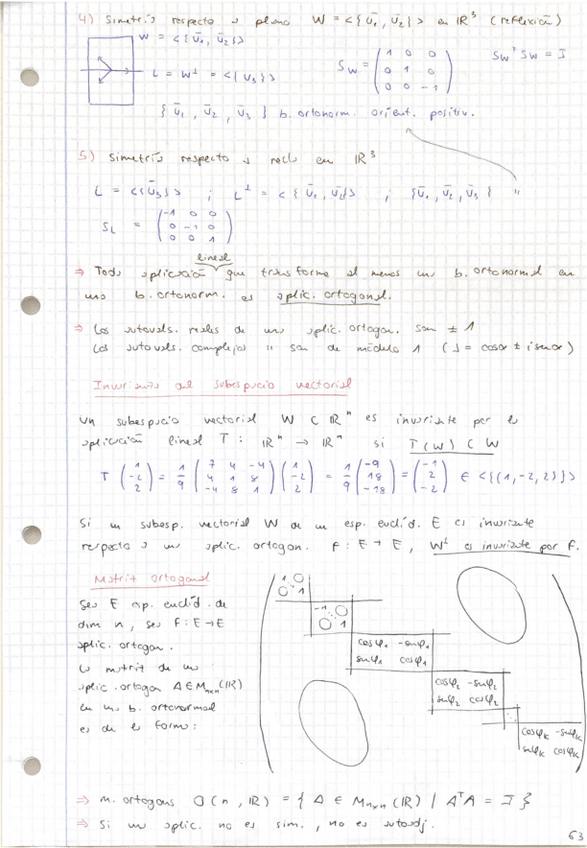 4) Simetría respecto a plano W = <{ū₁, ū₂}> en ℝ³ (reflexión)
W = <{ū₁, ū₂}>
L = W⊥ = <{ū₃}>
S_W = (1 0 0 / 0 1 0 / 0 0 -1)
S_Wᵗ S_W = I
{ū₁, ū₂, ū₃} b. ortonorm. orient. positiv.
5) Simetría respecto a recta en ℝ³
L = <{ū₃}> ; L⊥ = <{ū₁, ū₂}> ; {ū₁, ū₂, ū₃} "
S_L = (-1 0 0 / 0 -1 0 / 0 0 1)
lineal
⇒ Toda aplicación que transforma al menos una b. ortonormal en
una b. ortonorm. es aplic. ortogonal.
⇒ Los autovals. reales de una aplic. ortogon. son ± 1
Los autovals. complejos " son de módulo 1 (λ = cosα ± i senα)
Invariante del subespacio vectorial
Un subespacio vectorial W ⊂ ℝⁿ es invariante por la
aplicación lineal T : ℝⁿ → ℝⁿ si T(W) ⊂ W
T (1 / -2 / 2) = 1/9 (7 4 -4 / 4 1 8 / -4 8 1) (1 / -2 / 2) = 1/9 (-9 / 18 / -18) = (-1 / 2 / -2) ∈ <{(1, -2, 2)}>
Si un subesp. vectorial W de un esp. euclíd. E es invariante
respecto a una aplic. ortogon. f : E → E, W⊥ es invariante por f.
Matriz ortogonal
Sea E esp. euclíd. de
dim n, sea f : E → E
aplic. ortogon.
La matriz de una
aplic. ortogon A ∈ Mₙₓₙ(ℝ)
en una b. ortonormal
es de la forma:
1 0
0 1
-1 0
0 1
cosφ₁ -senφ₁
senφ₁ cosφ₁
cosφ₂ -senφ₂
senφ₂ cosφ₂
cosφₖ -senφₖ
senφₖ cosφₖ
⇒ m. ortogons O(n, ℝ) = {A ∈ Mₙₓₙ(ℝ) | AᵀA = I}
⇒ Si una aplic. no es sim., no es autoadj.
63